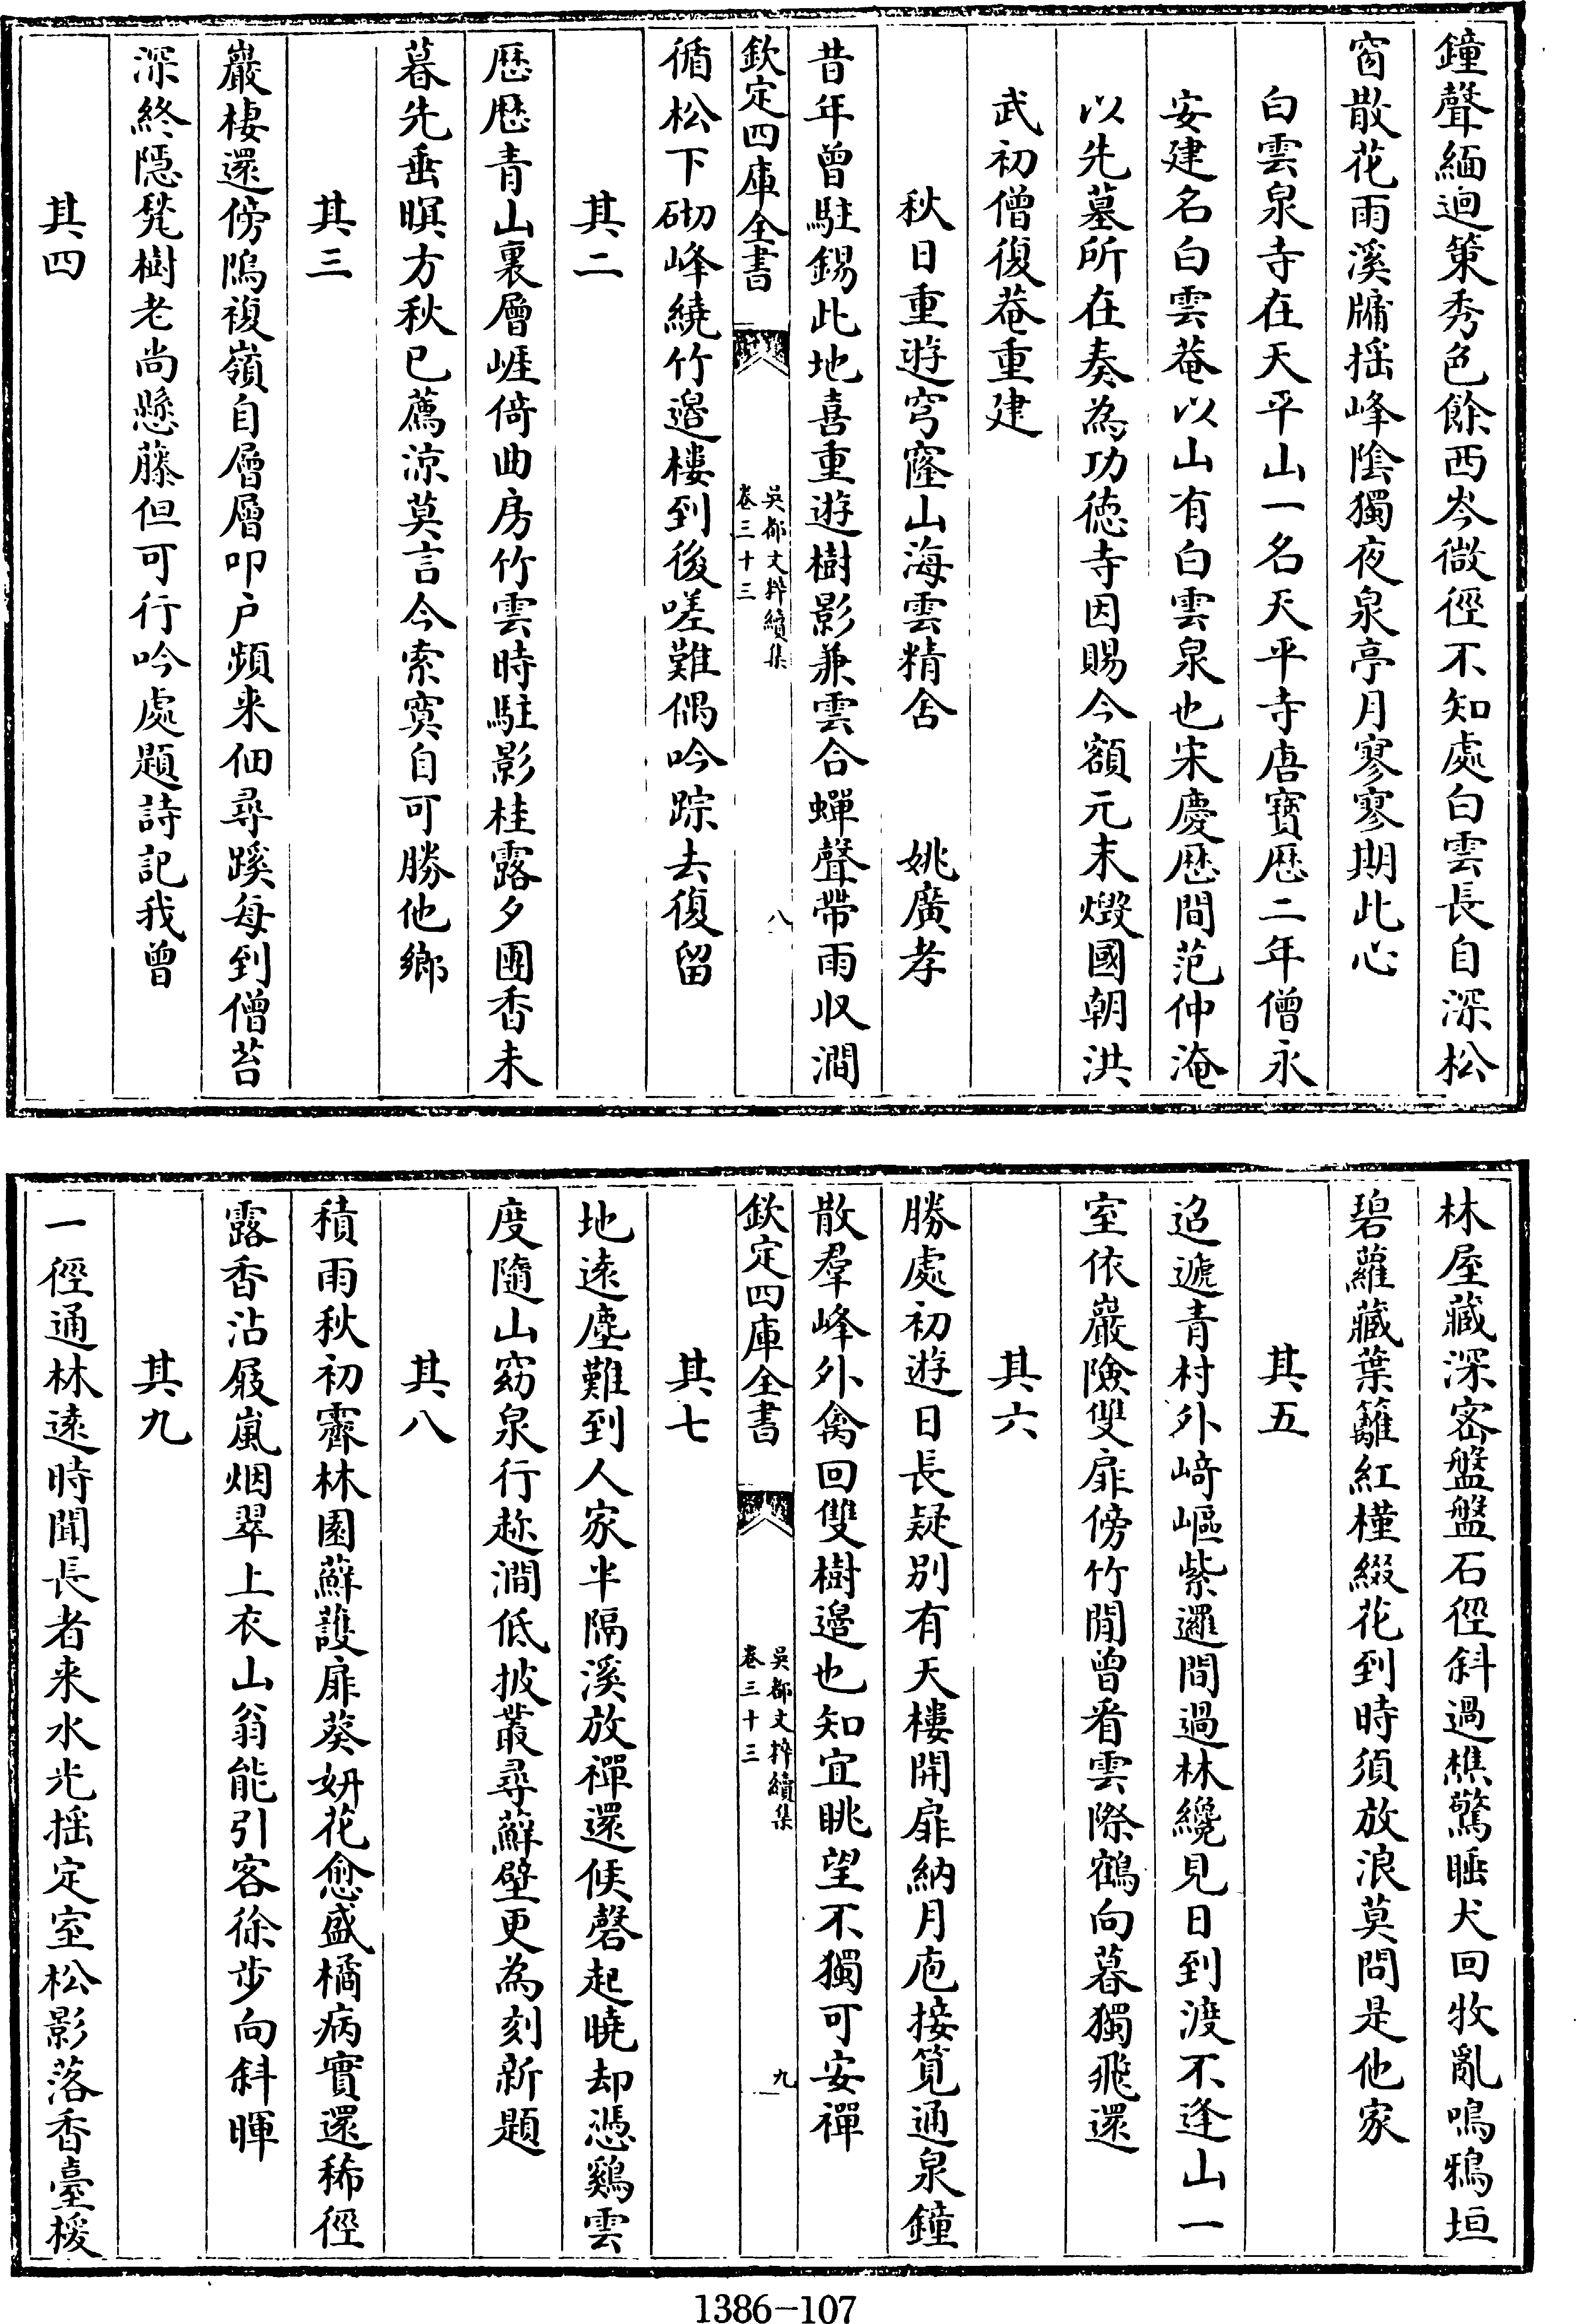 鐘聲緬迴策秀色餘西岑微徑不知處白雲長自深松
窗散花雨溪牖揺峰陰獨夜泉亭月寥寥期此心
白雲泉寺在天平山一名天平寺唐寳厯二年僧永
安建名白雲菴以山有白雲泉也宋慶厯間范仲淹
以先墓所在奏為功徳寺因賜今額元末燬國朝洪
武初僧復菴重建
秋日重遊穹窿山海雲精舍 姚廣孝
昔年曾駐錫此地喜重遊樹影兼雲合蟬聲帶雨収澗
欽定四庫全書 吳都文粹續集 卷三十三 八
循松下砌峰繞竹邉樓到後嗟難偶吟踪去復留
其二
厯厯青山裏層崕倚曲房竹雲時駐影桂露夕團香未
暮先垂暝方秋已薦涼莫言今索寞自可勝他鄉
其三
巖棲還傍隖複嶺自層層叩户頻来佃尋蹊每到僧苔
深終隱凳樹老尚懸藤但可行吟處題詩記我曾
其四
林屋藏深宻盤盤石徑斜過樵驚睡犬回牧亂鳴鴉垣
碧蘿藏葉籬紅槿綴花到時須放浪莫問是他家
其五
迢遞青村外﨑嶇紫邏間過林纔見日到渡不逢山一
室依巖險雙扉傍竹閒曾看雲際鶴向暮獨飛還
其六
勝處初遊日長疑别有天樓開扉納月庖接筧通泉鐘
散羣峰外禽回雙樹邉也知宜眺望不獨可安禪
欽定四庫全書 吳都文粹續集 卷三十三 九
其七
地逺塵難到人家半隔溪放禪還候磬起曉却憑鷄雲
度隨山窈泉行趂澗低披叢尋蘚壁更為刻新題
其八
積雨秋初霽林園蘚護扉葵妍花愈盛橘病實還稀徑
露香沾屐嵐烟翠上衣山翁能引客徐步向斜暉
其九
一徑通林逺時聞長者来水光揺定室松影落香臺榠
1386-107